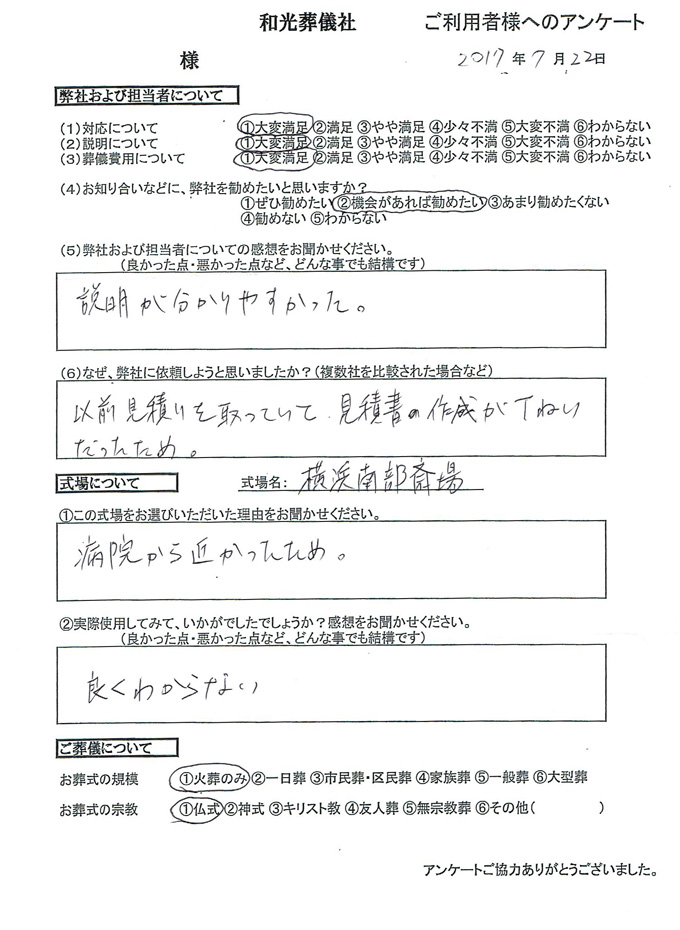 和光葬儀社 ご利用者様へのアンケート
様 2017年7月22日
弊社および担当者について
(1)対応について ①大変満足②満足③やや満足④少々不満⑤大変不満⑥わからない
(2)説明について ①大変満足②満足③やや満足④少々不満⑤大変不満⑥わからない
(3)葬儀費用について ①大変満足②満足③やや満足④少々不満⑤大変不満⑥わからない
(4)お知り合いなどに、弊社を勧めたいと思いますか?
①ぜひ勧めたい②機会があれば勧めたい③あまり勧めたくない
④勧めない⑤わからない
(5)弊社および担当者についての感想をお聞かせください。
(良かった点・悪かった点など、どんな事でも結構です)
説明が分かりやすかった。
(6)なぜ、弊社に依頼しようと思いましたか?(複数社を比較された場合など)
以前見積りを取っていて、見積書の作成がTねい
だったため。
式場について 式場名: 横浜南部斎場
①この式場をお選びいただいた理由をお聞かせください。
病院から近かったため。
②実際使用してみて、いかがでしたでしょうか?感想をお聞かせください。
(良かった点・悪かった点など、どんな事でも結構です)
良くわからない
ご葬儀について
お葬式の規模 ①火葬のみ②一日葬③市民葬・区民葬④家族葬⑤一般葬⑥大型葬
お葬式の宗教 ①仏式②神式③キリスト教④友人葬⑤無宗教葬⑥その他( )
アンケートご協力ありがとうございました。